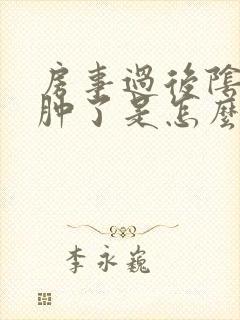 房事過後陰
肿了是怎麼
李永巍